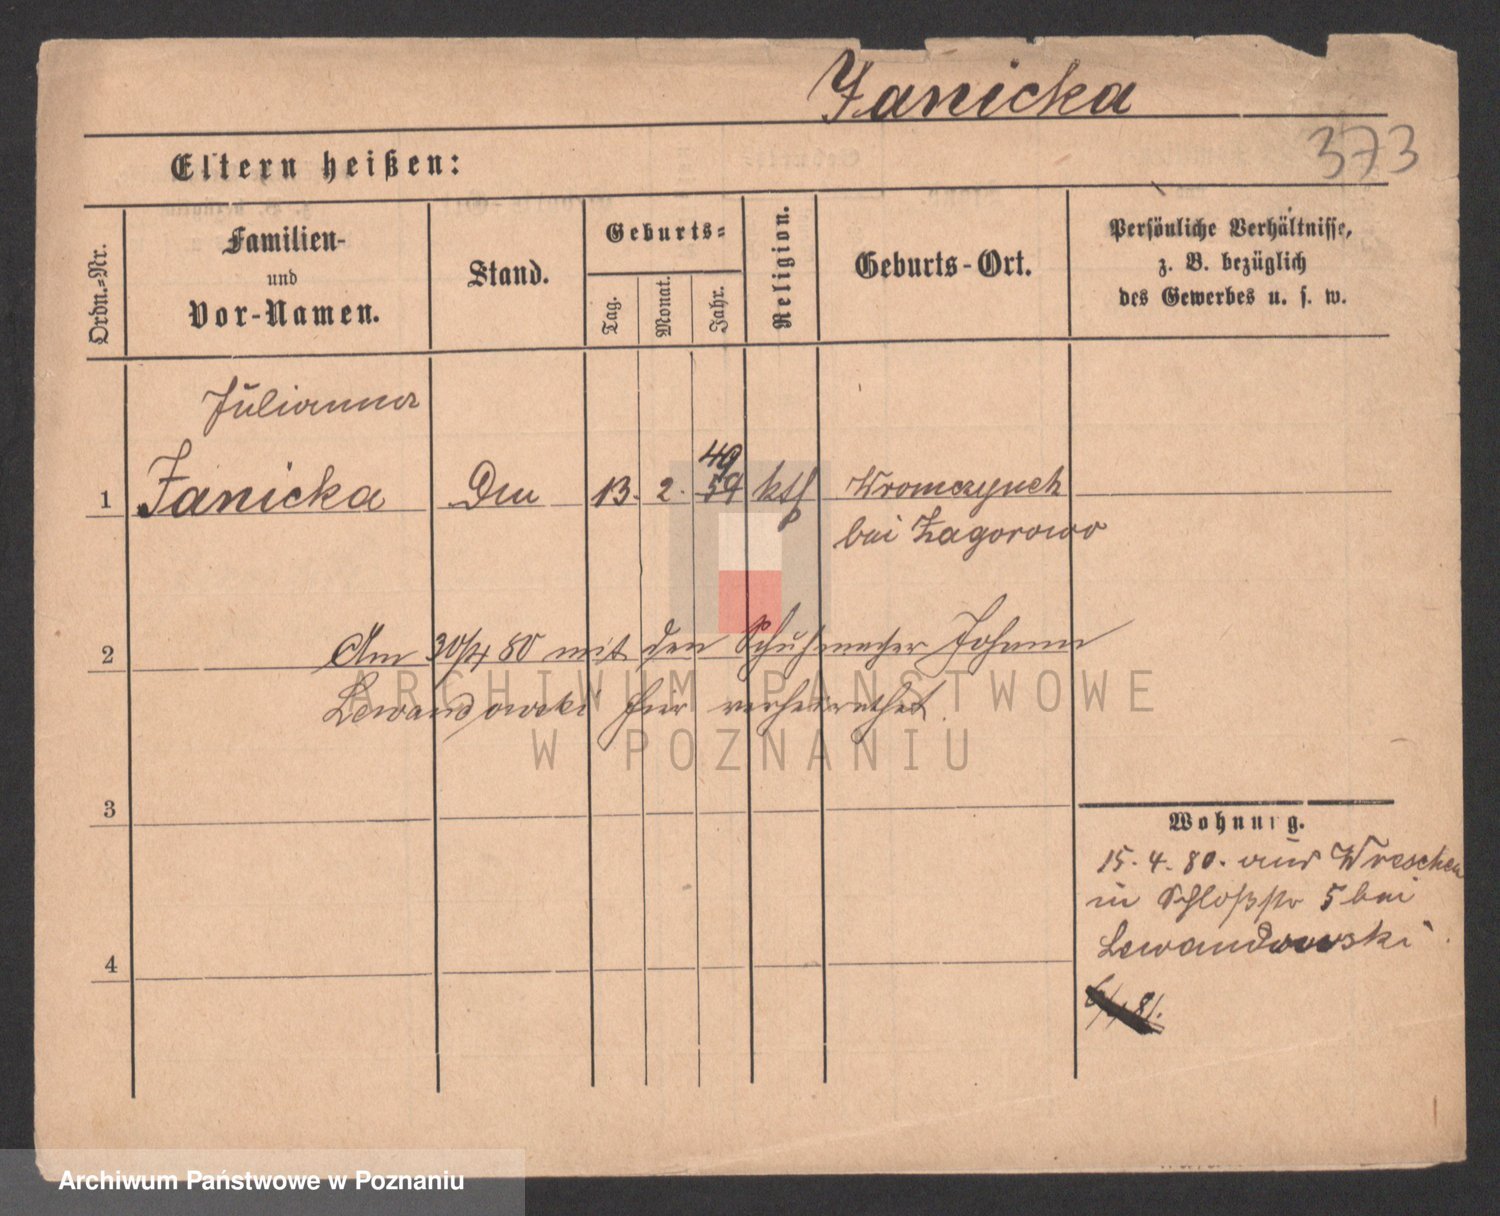 Janicka
373
Eltern heißen:
Ordn.-Nr.
Familien-
und
Vor-Namen.
Stand.
Geburts-
Tag.
Monat.
Jahr.
Religion.
Geburts-Ort.
Persönliche Verhältnisse,
z. B. bezüglich
des Gewerbes u. s. w.
Julianna
1 Janicka 13. 2. 59 kth Wromczynek
49
bei Zagorowo
2 Am 30/4 80 mit den Schuhmacher Johann
Lewandowski hier verheirathet.
3
4
Wohnung.
15. 4. 80. aus Wreschen
in Schloßstr 5 bei
Lewandowski
ARCHIWUM PAŃSTWOWE
W POZNANIU
Archiwum Państwowe w Poznaniu